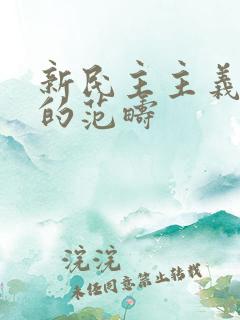 新民主主义
的范畴
浣浣
未经同意禁止转载